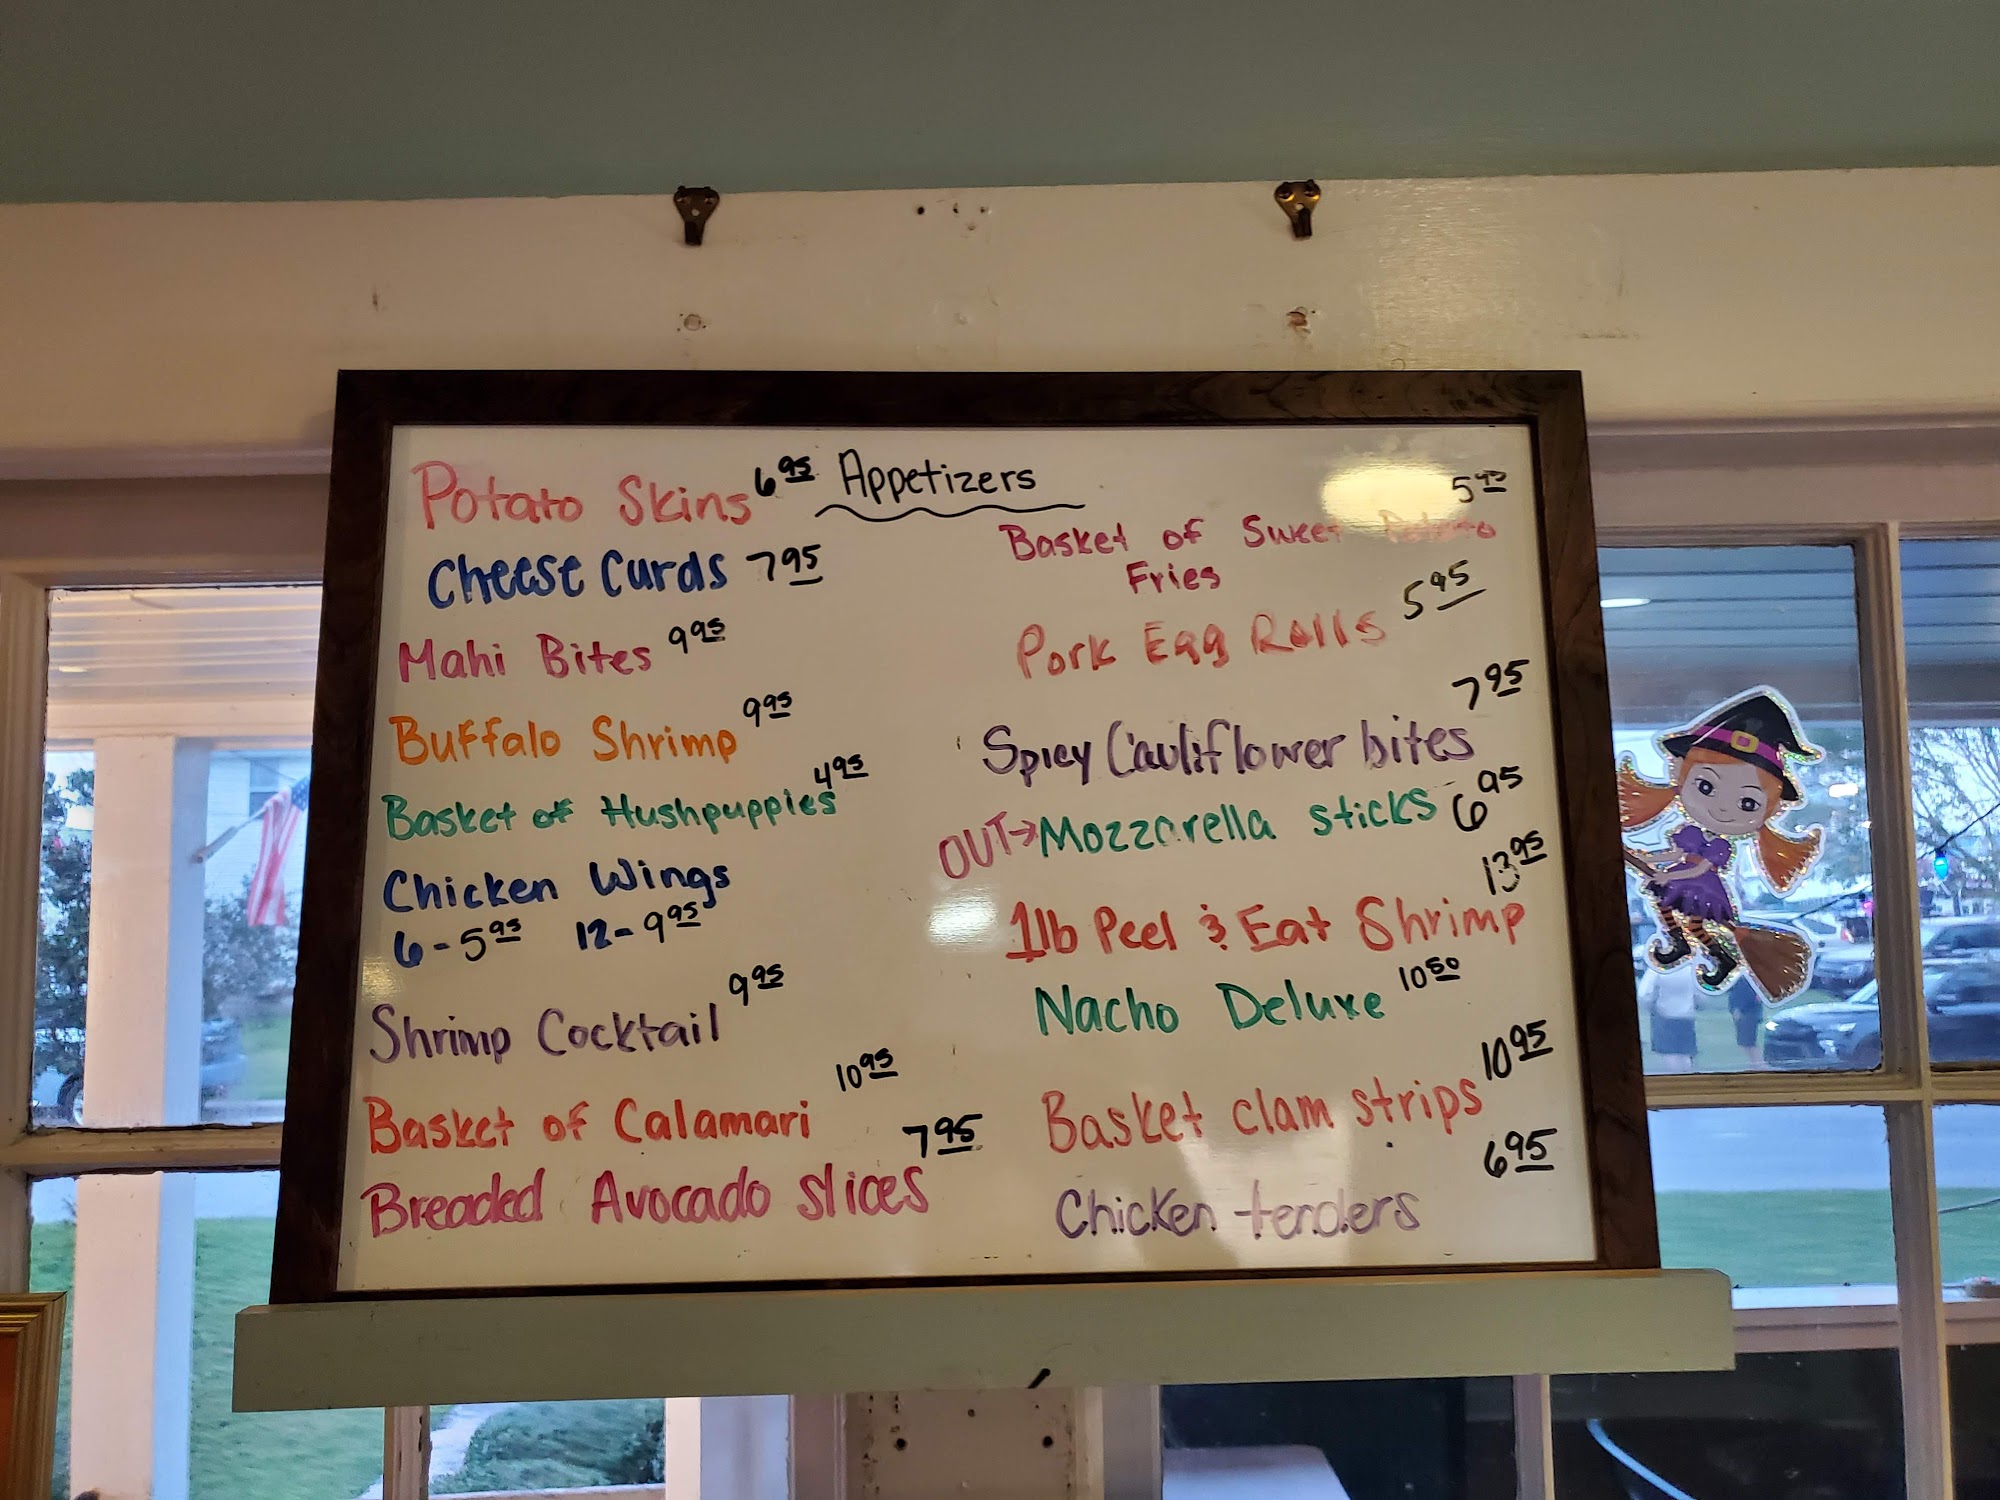 Appetizers
Potato Skins 6.95
Cheese Curds 7.95
Mahi Bites 9.95
Buffalo Shrimp 9.95
Basket of Hushpuppies 4.95
Chicken Wings
6 - 5.95 12 - 9.95
Shrimp Cocktail 9.95
Basket of Calamari 10.95
Breaded Avocado slices 7.95
Basket of Sweet Potato
Fries
Pork Egg Rolls 5.95
Spicy Cauliflower bites 7.95
OUT→Mozzarella sticks 6.95
1lb Peel & Eat Shrimp 13.95
Nacho Deluxe 10.50
Basket clam strips 10.95
Chicken tenders 6.95